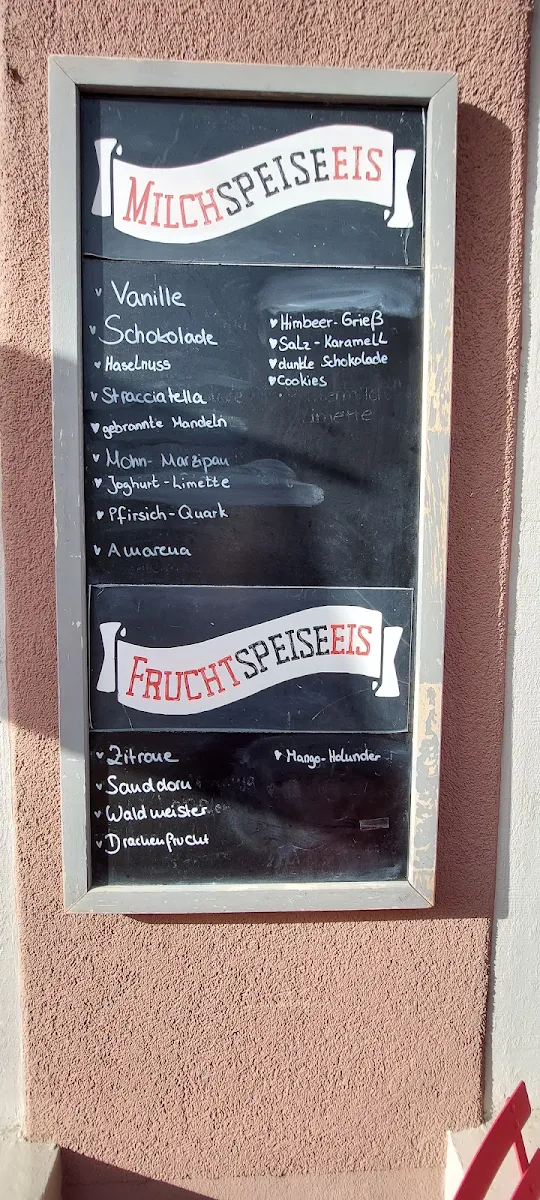 MILCHSPEISEEIS
Vanille
Schokolade
Haselnuss
Stracciatella
gebrannte Mandeln
Mohn-Marzipan
Joghurt-Limette
Pfirsich-Quark
Amarena
Himbeer-Grieß
Salz-Karamell
dunkle Schokolade
Cookies
Limette
FRUCHTSPEISEEIS
Zitrone
Sanddorn
Waldmeister
Drachenfrucht
Mango-Holunder